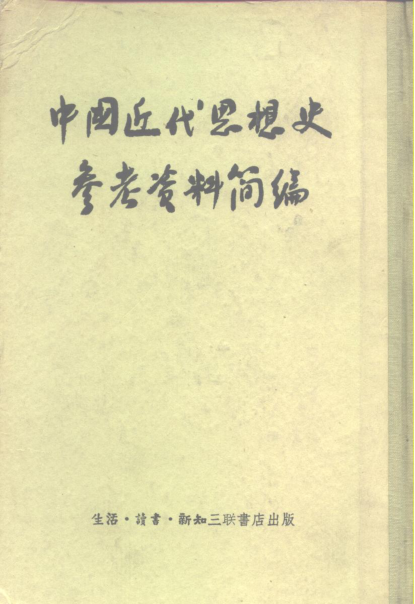 中国近代思想史
参考资料简编
生活·讀書·新知三联書店出版